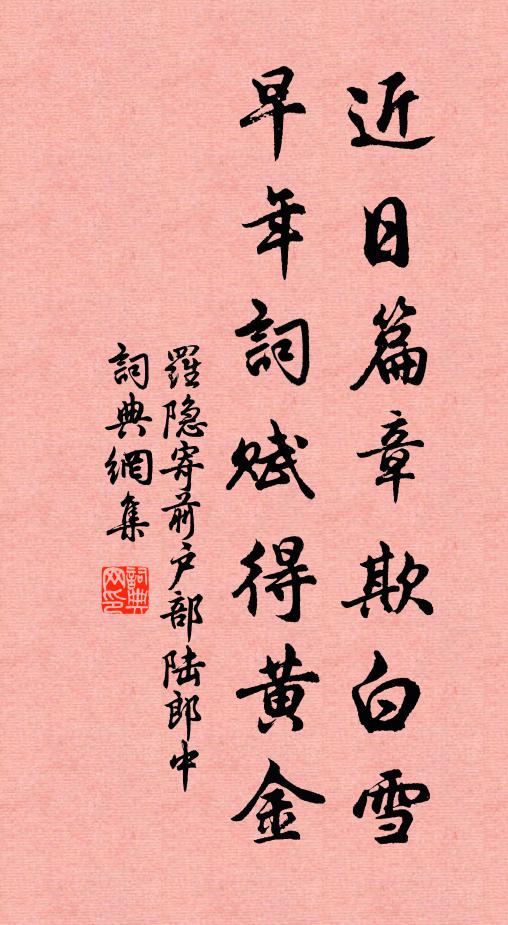 近日篇章欺白雪
早年詞賦得黄金
羅隐寄前户部陆郎中
詞典網集
詞典网印